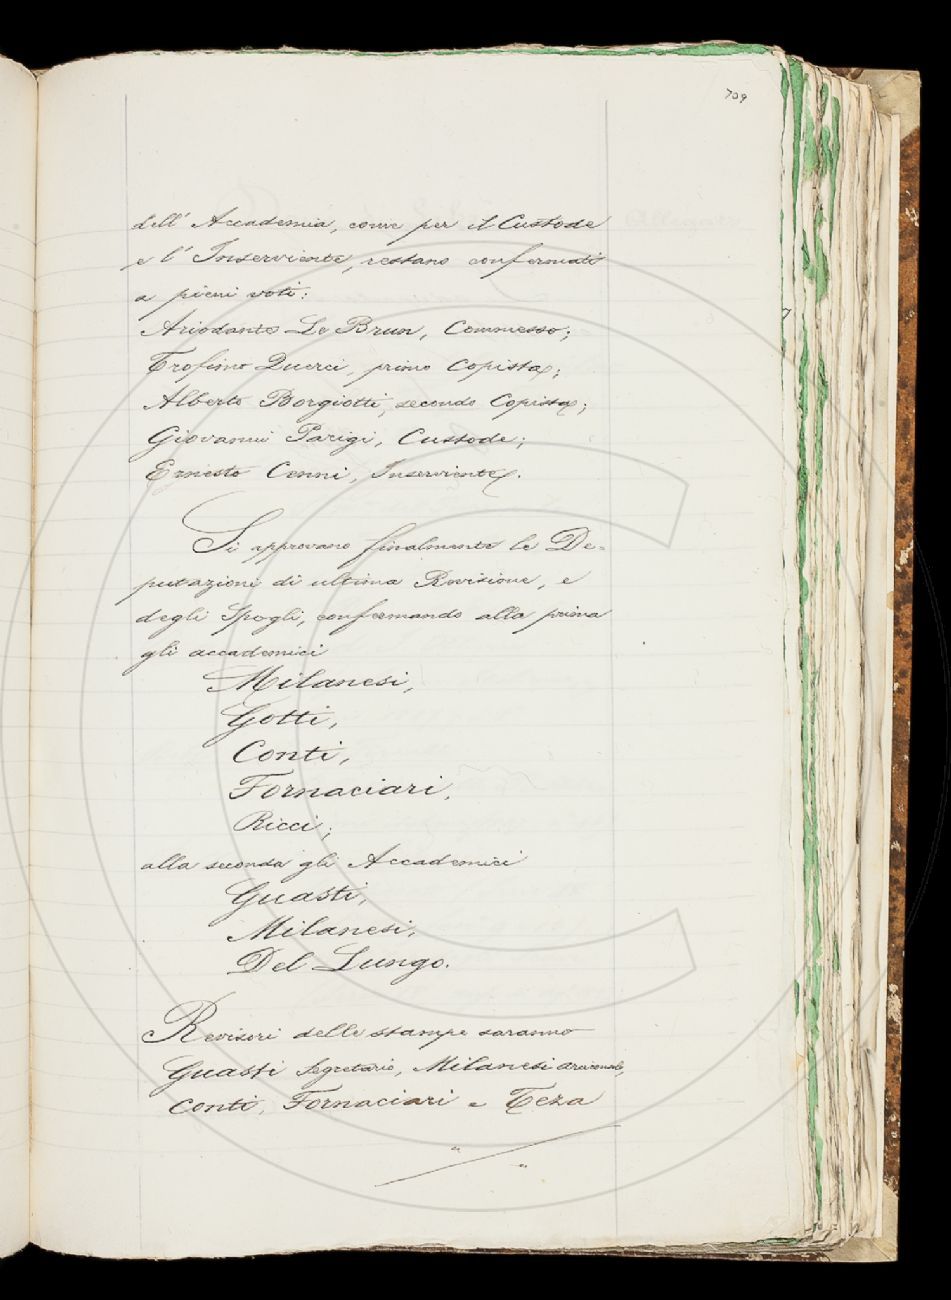 709
dell' Accademia, come per il Custode
e l' Inserviente, restano confermati
a pieni voti:
Ariodante Le Brun, Commesso;
Trofimo Querci, primo Copista;
Alberto Borgiotti, secondo Copista;
Giovanni Parigi, Custode;
Ernesto Cenni, Inserviente.
Si approvano finalmente le De=
putazioni di ultima Revisione, e
degli Spogli, confermando alla prima
gli accademici
Milanesi,
Gotti,
Conti,
Fornaciari,
Ricci;
alla seconda gli Accademici
Guasti,
Milanesi,
Del Lungo.
Revisori delle stampe saranno
Guasti Segretario, Milanesi arciconsolo,
Conti, Fornaciari e Teza